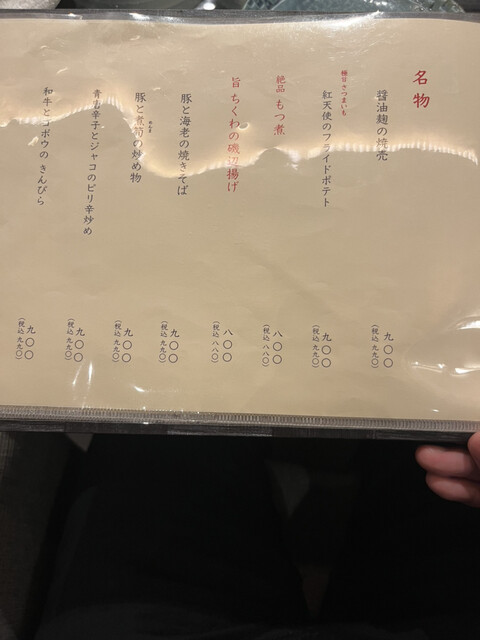 名物
醤油麹の焼売
九〇〇
(税込 九九〇)
極甘さつまいも
紅天使のフライドポテト
九〇〇
(税込 九九〇)
絶品 もつ煮
八〇〇
(税込 八八〇)
旨 ちくわの磯辺揚げ
八〇〇
(税込 八八〇)
豚と海老の焼きそば
九〇〇
(税込 九九〇)
豚と煮筍の炒め物
九〇〇
(税込 九九〇)
青唐辛子とジャコのピリ辛炒め
九〇〇
(税込 九九〇)
和牛とゴボウのきんぴら
九〇〇
(税込 九九〇)